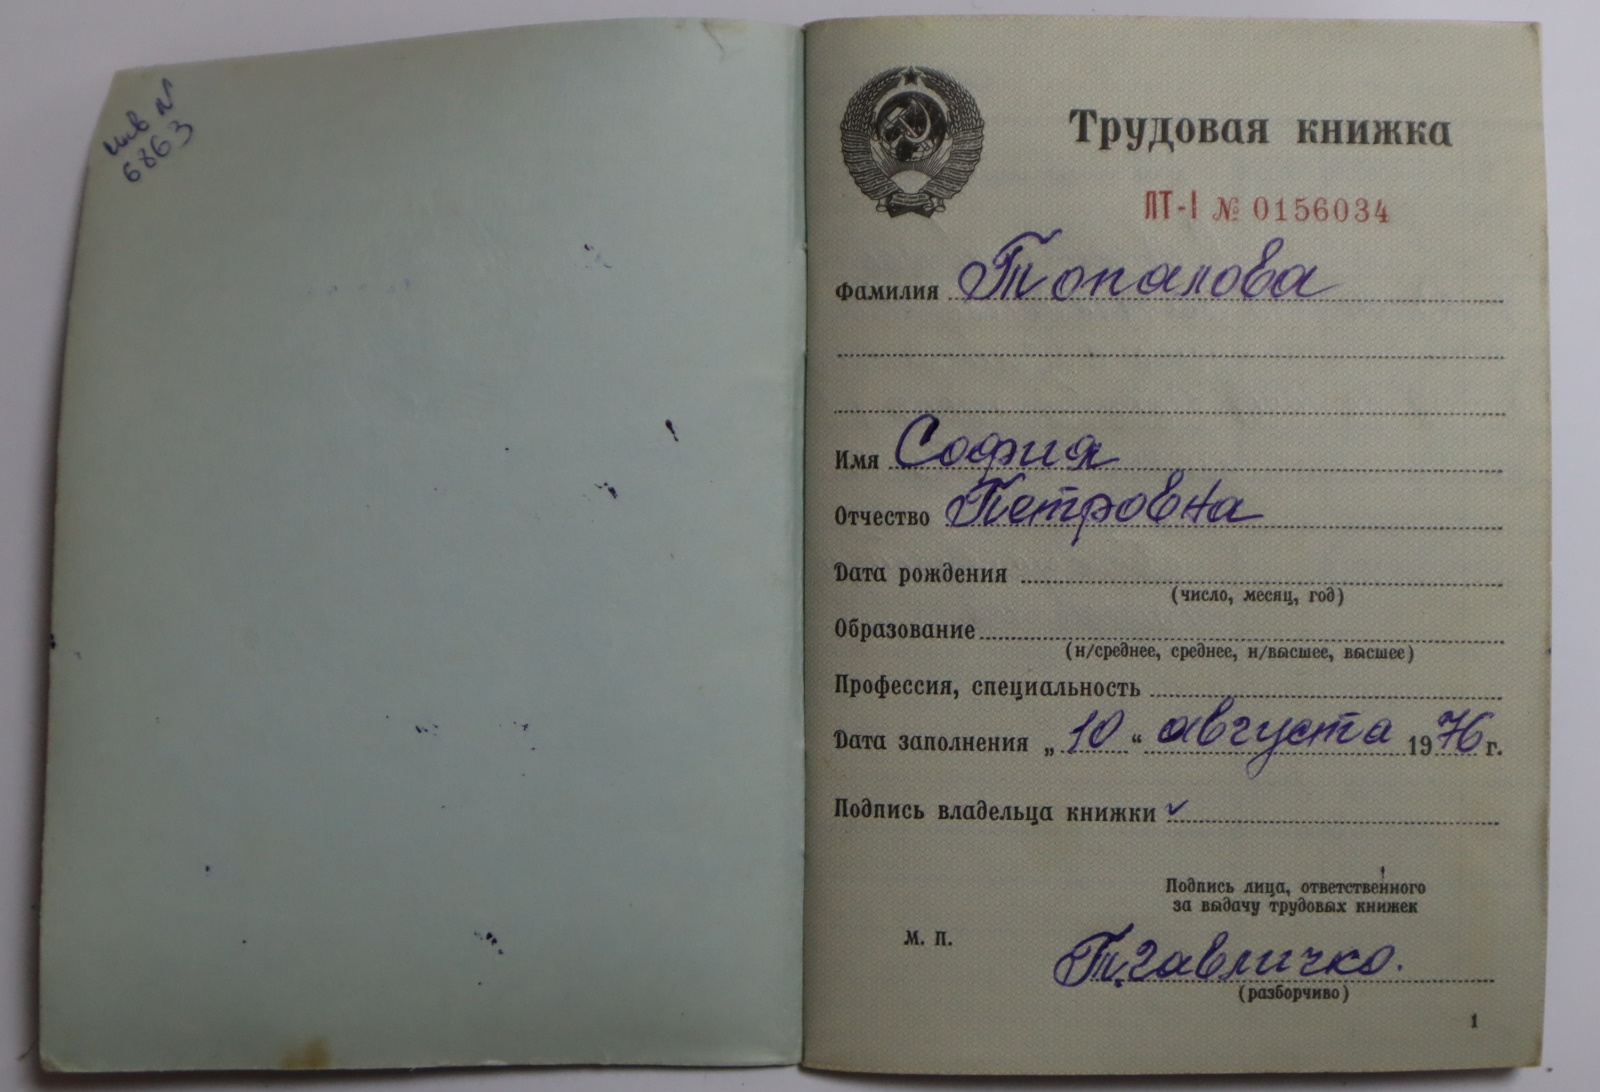 инв №
6863
Трудовая книжка
ПТ-I № 0156034
Фамилия Топалова
Имя София
Отчество Петровна
Дата рождения
(число, месяц, год)
Образование
(н/среднее, среднее, н/высшее, высшее)
Профессия, специальность
Дата заполнения „10“ августа 1976 г.
Подпись владельца книжки
Подпись лица, ответственного
за выдачу трудовых книжек
М. П.
(разборчиво)
1